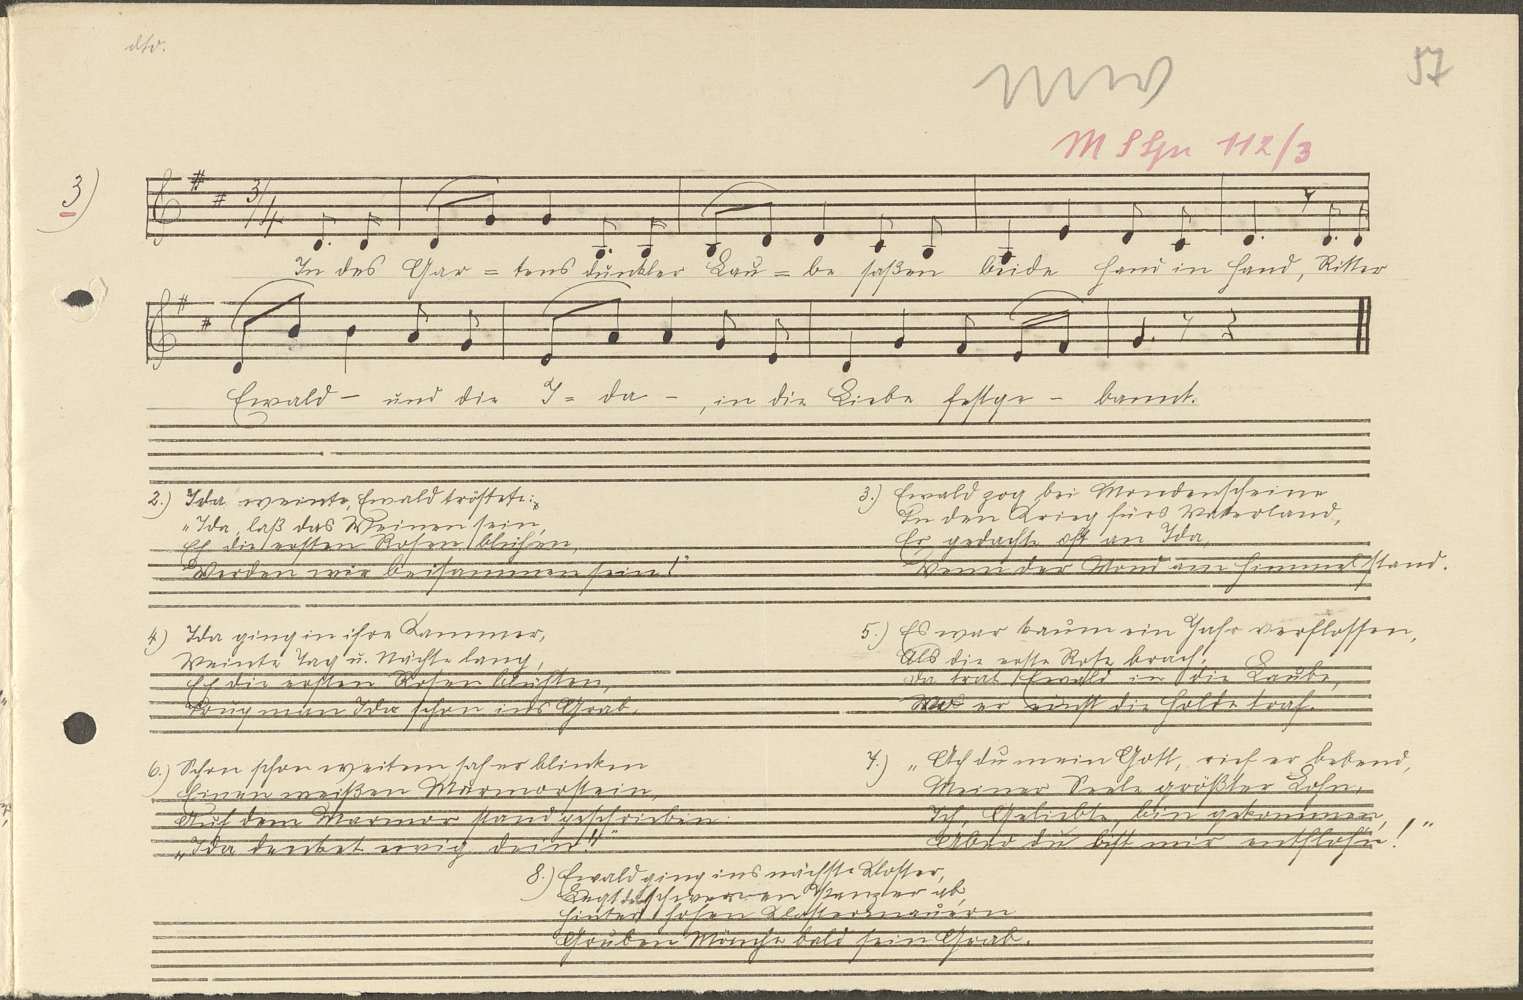 dto.
57
M 112/3
3)
3/4
In des Gar = tens dunkler Lau = be saßen beide Hand in Hand, Ritter
Ewald – und die I = da –, in die Liebe festge – bannt.
2.) Ida weinte, Ewald tröstete:
„Ida, laß das Weinen sein,
Eh die ersten Rosen blühen,
Werden wir beisammen sein!"
3.) Ewald zog bei Mondenscheine
In den Krieg fürs Vaterland,
Er gedachte oft an Ida,
Wenn der Mond am Himmel stand.
4) Ida ging in ihre Kammer,
Weinte Tag u. Nächte lang,
Eh die ersten Rosen blühten,
Trug man Ida schon ins Grab.
5.) Es war kaum ein Jahr verflossen,
Als die erste Rose brach;
Da trat Ewald in die Laube,
Wo er einst die Holde traf.
6.) Schon schon weitem sah er blinken
Einen weißen Marmorstein,
Auf dem Marmor stand geschrieben:
„Ida denket ewig dein!"
7.) „Ach du mein Gott, rief er bebend,
Meiner Seele größter Lohn,
Ich, Geliebte, bin gekommen,
Aber du bist mir entflohn!"
8.) Ewald ging ins nächste Kloster,
Legt schweren Panzer ab,
Hinter hohen Klostermauern
Gruben Mönche bald sein Grab.